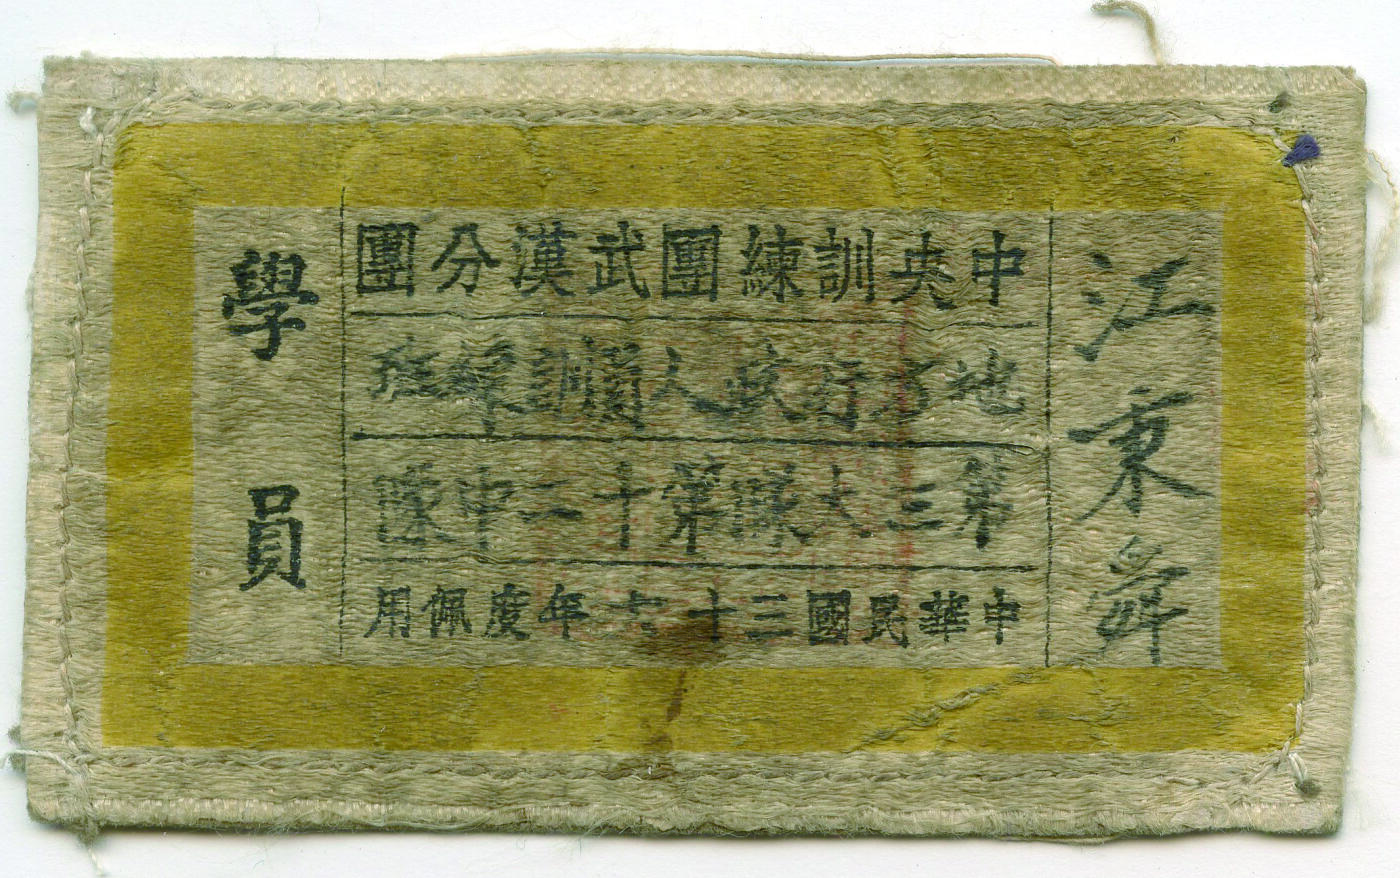 江秉舜
中央訓練團武漢分團
地方行政人員訓練班
第三大隊第十二中隊
中華民國三十七年度佩用
學員